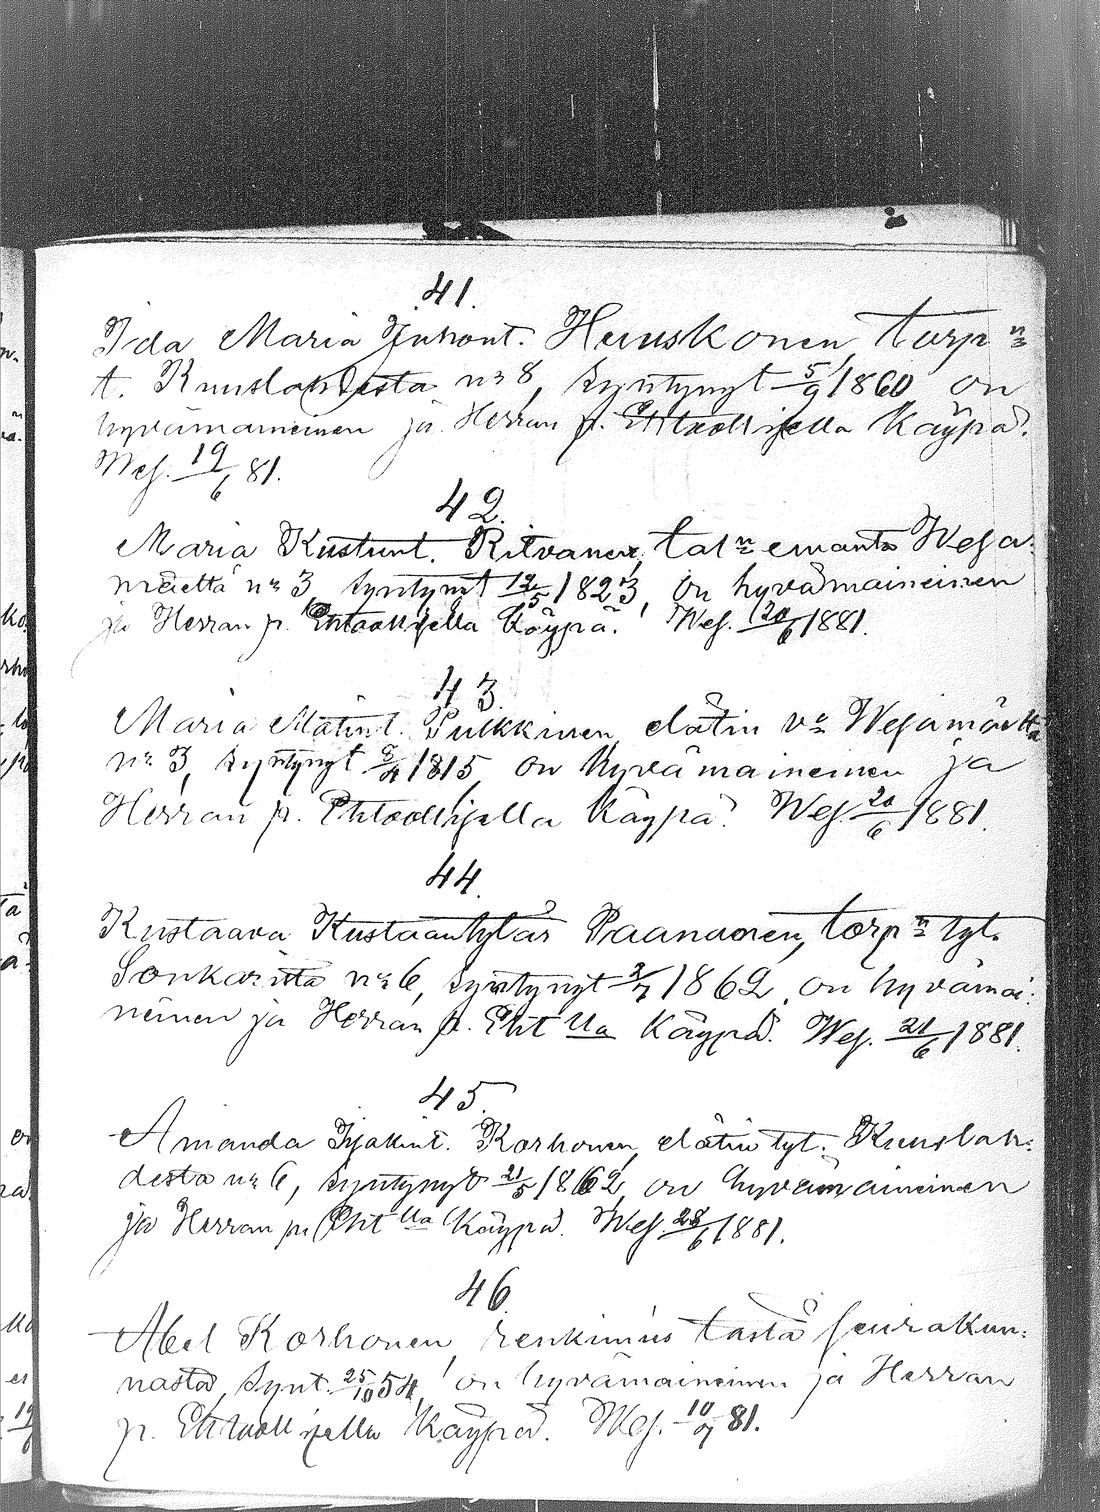 41.
Ida Maria Juhont. Huuskonen torp n
t. Kuuslahdesta no 8, Syntynyt 5/9 1860 on
hyvämaineinen ja Herran p. Ehtoollisella Käypä.
Wes. 19/6 81.
42.
Maria Kustunt. Ritvanen, tal n emäntä Wesa:
mäeltä no 3, Syntynyt 12/5 1823, on hyvämaineinen
ja Herran p. Ehtoollisella Käypä. Wes. 20/6 1881.
43.
Maria Matint. Pulkkinen elätin v n Wesamäeltä
no 3, Syntynyt 3/4 1815 on hyvämaineinen ja
Herran p. Ehtoollisella Käypä. Wes. 20/6 1881.
44.
Kustaava Kustaantytär Paananen, torp n tyt.
Sonkarilta no 6, Syntynyt 2/7 1862, on hyvämai:
neinen ja Herran p. Eht lla Käypä. Wes. 21/6 1881.
45.
Amanda Iisakint. Korhonen, elätin tyt. Kuuslah:
desta no 6, Syntynyt 21/5 1862, on hyvämaineinen
ja Herran p. Eht lla Käypä. Wes. 28/6 1881.
46.
Abel Korhonen, renkimies tästä seurakun:
nasta, Synt. 25/10 54, on hyvämaineinen ja Herran
p. Ehtoollisella Käypä. Wes. 10/7 81.